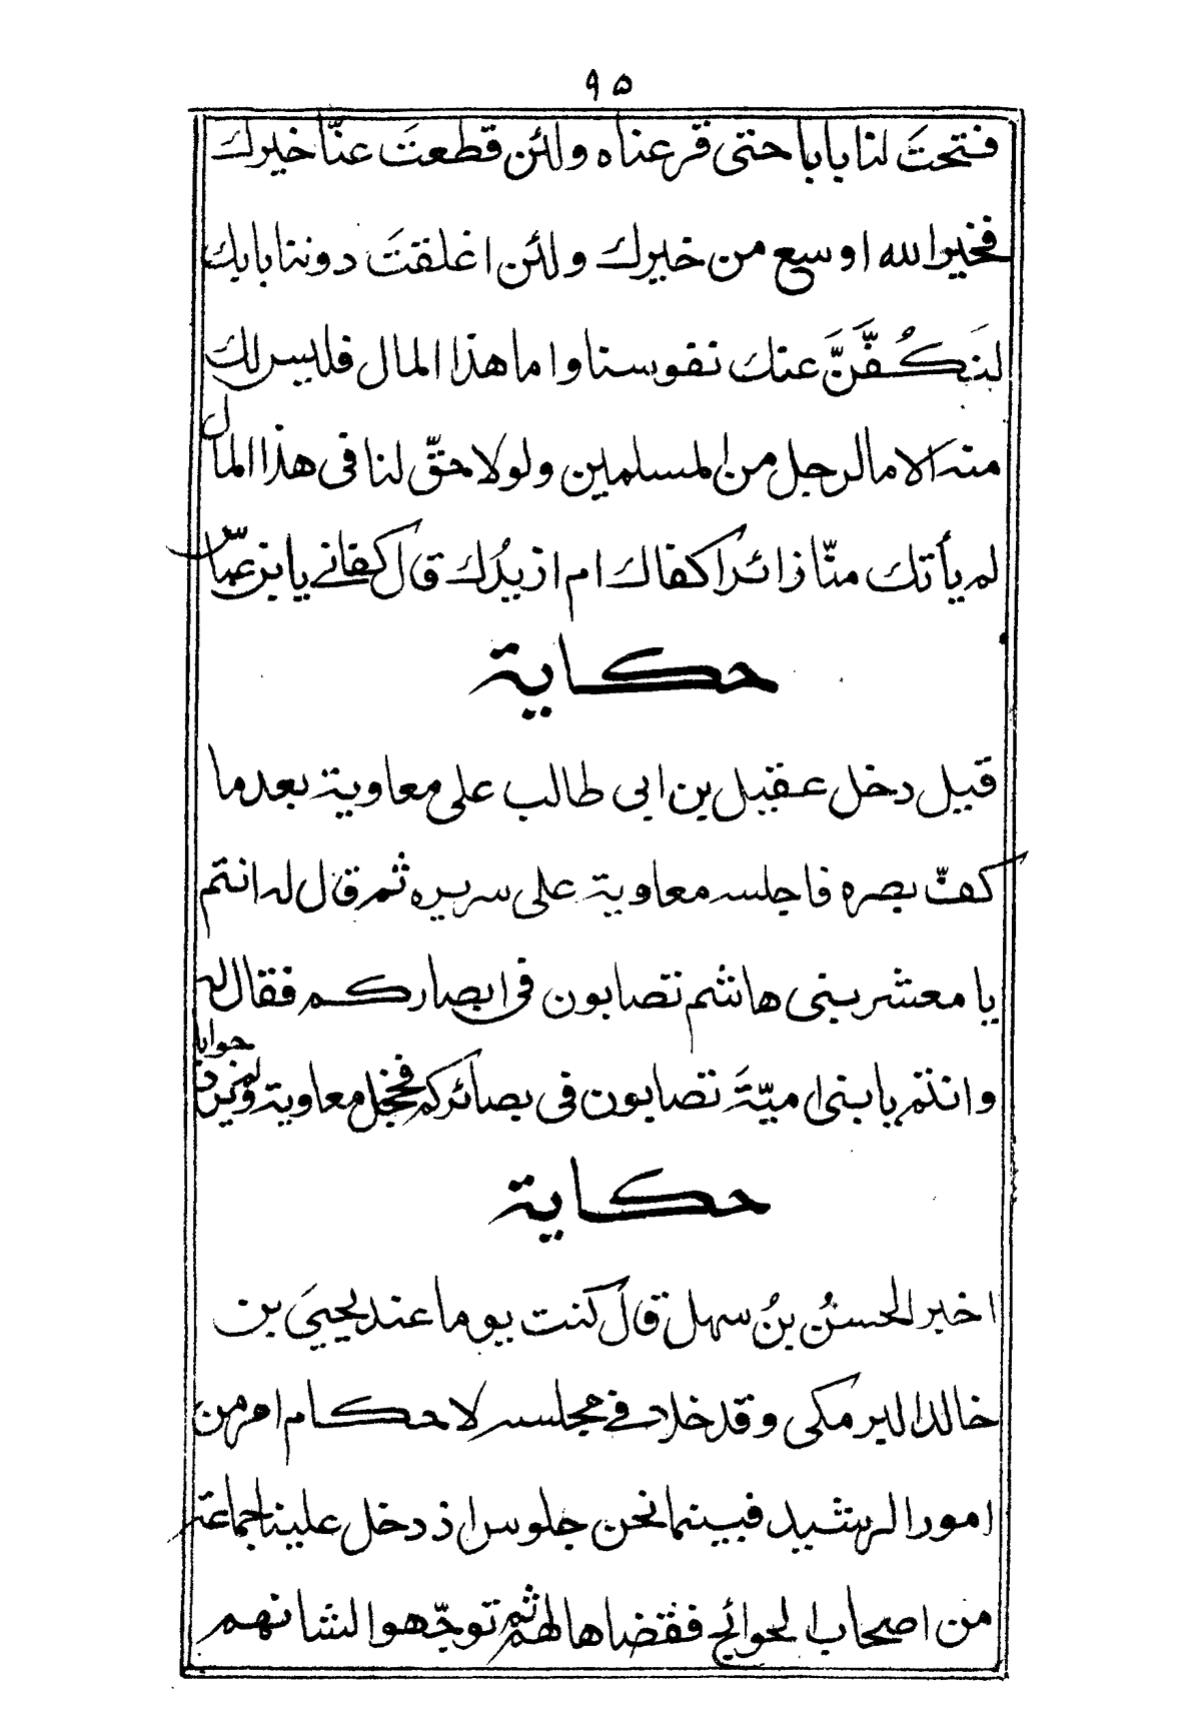 ٩٥
فتحتَ لنا بابا حتى قرعناه ولئن قطعتَ عنّا خيرك
فخير الله اوسع من خيرك ولئن اغلقتَ دوننا بابك
لنَكُفَّنَّ عنك نفوسنا واما هذا المال فليس لك
منه الا مالرجل من المسلمين ولولا حقّ لنا فى هذا المال
لم يأتك منّا زائر اكفاك ام ازيدُك قال كفانے يا ابن عبّاس
حكاية
قيل دخل عقيل بن ابى طالب على معاوية بعد ما
كفّ بصره فاجلسه معاوية على سريره ثم قال له انتم
يا معشر بنى هاشم تصابون فى ابصاركم فقال له
وانتم يا بنى اميّةَ تصابون فى بصائركم فخجل معاوية ولم يرد جوابا
حكاية
اخبر الحسنُ بنُ سهل قال كنت يوما عند يحيىَ بن
خالد البرمكى وقد خلا فے مجلسه لاحكام امر من
امور الرشيد فبينما نحن جلوس اذ دخل علينا جماعة
من اصحاب الحوائج فقضاها لهم ثم توجّهوا لشانهم